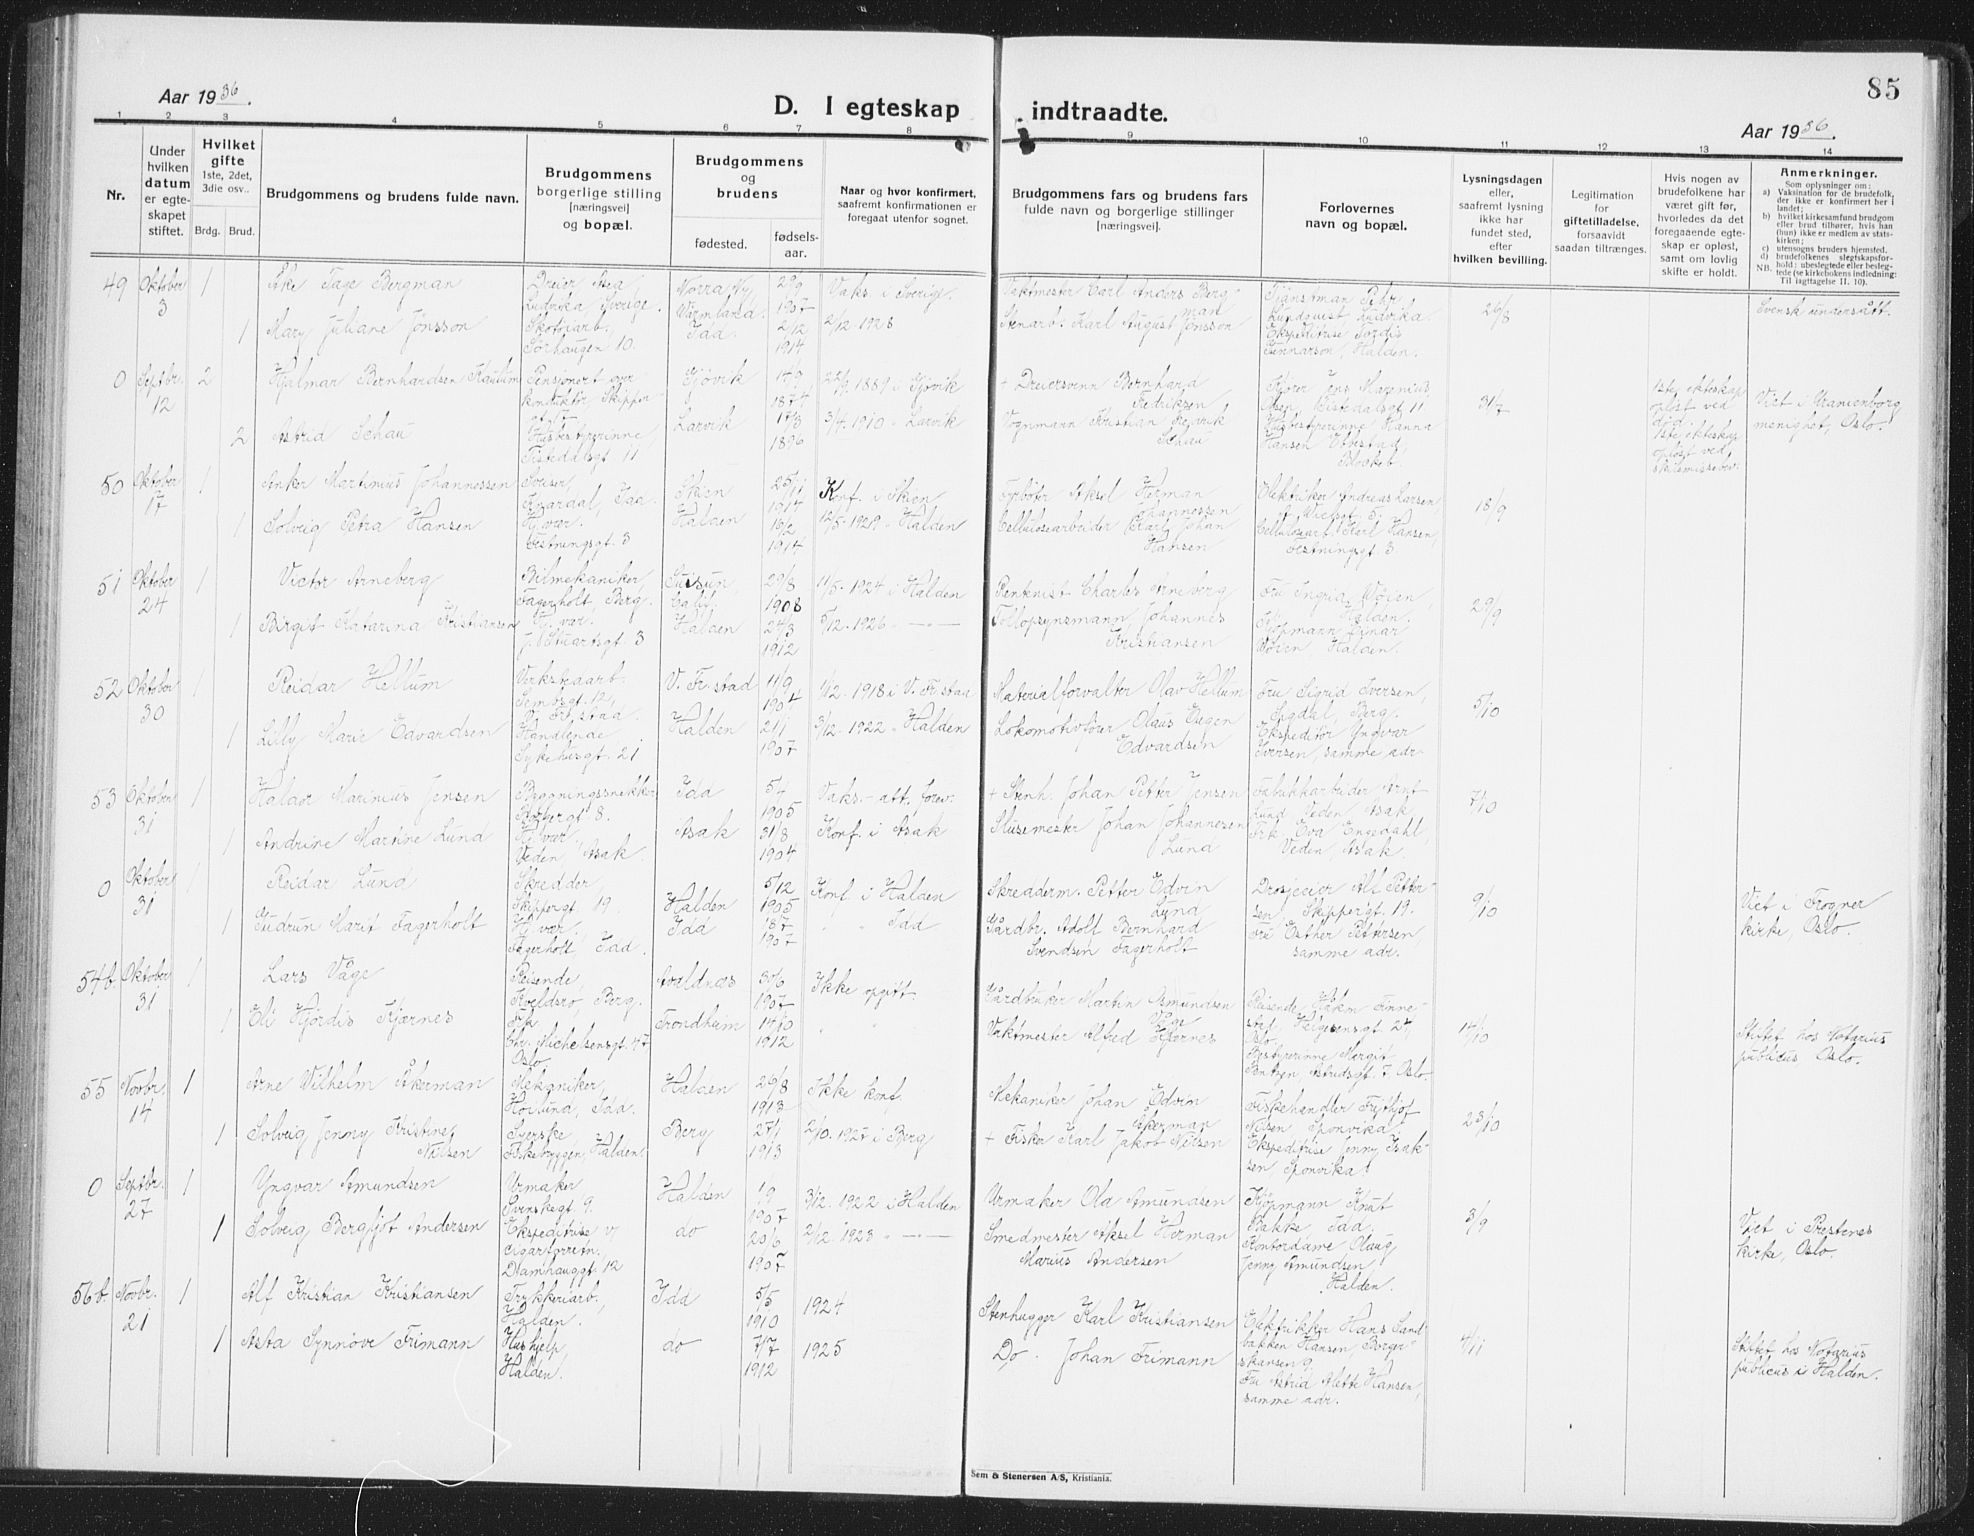 Aar 1936.
D. I egteskap indtraadte.
Aar 1936.
85
1 2 3 4 5 6 7 8 9 10 11 12 13 14
Nr.
Under hvilken datum er egteskapet stiftet.
Hvilket gifte 1ste, 2det, 3die osv..
Brdg. Brud.
Brudgommens og brudens fulde navn.
Brudgommens borgerlige stilling [næringsvei] og bopæl.
Brudgommens og brudens
fødested. fødselsaar.
Naar og hvor konfirmert, saafremt konfirmationen er foregaat utenfor sognet.
Brudgommens fars og brudens fars fulde navn og borgerlige stillinger [næringsvei].
Forlovernes navn og bopæl.
Lysningsdagen eller, saafremt lysning ikke har fundet sted, efter hvilken bevilling.
Legitimation for giftetilladelse, forsaavidt saadan tiltrænges.
Hvis nogen av brudefolkene har været gift før, hvorledes da det foregaaende egteskap er opløst, samt om lovlig skifte er holdt.
Anmerkninger.
Som oplysninger om:
a) Vaksination for de brudefolk, der ikke er konfirmert her i landet;
b) hvilket kirkesamfund brudgom eller brud tilhører, hvis han (hun) ikke er medlem av statskirken;
c) utensogns bruders hjemsted.
d) brudefolkenes slegtskapsforhold: ubeslegtede eller beslegtede (se kirkebokens indledning: Til iagttagelse II. 10).
NB.
49 Oktober 3 1 Åke Tage Bergman Dreier Ludvika Sverige. Norra Ny Värmland. 29/9 1907 Vaks. i Sverige. Vaktmester Carl Anders Bergman Tjänstman Pehr Lundquist Ludvika. 26/8 Svensk undersått.
1 Mary Juliane Jönsson Skotöiarb. Sörhaugen 10. Idd. 2/12 1914 2/12 1928 Stenarb. Karl August Jönsson Ekspeditrise Tordis Gunnarson, Halden.
0 Septbr. 12 2 Hjalmar Bernhardsen Kaulum Pensjonert over konduktör Skippergt 17 Gjövik 14/9 1874 22/9 1889 i Gjövik + Dreiersvenn Bernhard Fedriksen Kjører Jens Marenius Olsen, Tistedalsgt 11 31/7 1ste ekteskap oplöst ved död. Viet i Uranienborg menighet, Oslo.
2 Astrid Schau Husbestyrerinne, Tistedalsgt 11 Larvik 17/3 1896 3/4 1910 - Larvik Vognmann Kristian Schau Husbestyrerinne Hanna Hansen 1ste ekteskap oplöst ved skilsmissebev.
50 Oktober 17 1 Anker Martinius Johannessen Sveiser, Knardal, Idd. Skien 25/11 1914 Konf. i Skien Fyrböter Aksel Herman Johannessen Elektriker Andreas Larsen, Wielsgt. 5. 18/9
1 Solveig Petra Hansen Hj. vær. Festningsgt. 3 Halden 16/2 1914 12/5 1929 - Halden Cellulosearbeider Karl Johan Hansen Cellulosearb. Karl Hansen, Festningsgt 3.
51 Oktober 24 1 Victor Arneberg Bilmekaniker, Fagerholt, Berg. Suisun, Calif. 29/8 1908 11/5. 1924 i Halden Charles Arneberg Fru Ingrid Wöien, Halden. 29/9
1 Birgit Katarina Kristiansen Hj. vær. J. Stuartsgt. 3 Halden 24/3 1912 5/12. 1926 - - - Tollopsynsmann Johannes Kristiansen Kjöpmann Einar Wöien, Halden.
52 Oktober 30 1 Reidar Hellum Verkstedarb. Sembsgt. 12, V. Fr.stad 11/9 1904 1/12. 1918 i V. Fr.stad Materialforvalter Olav Hellum Fru Sigrid Iversen, Sigdal, Berg. 5/10
1 Lilly Marie Edvardsen Handlende Sykehusgt. 21 Halden 21/1 1907 3/12. 1922 - Halden Lokomotivförer Olaus Eugen Edvardsen Ekspeditör Yngvar Iversen, samme adr.
53 Oktober 31 1 Haldor Marinius Jensen Bygningssnekker Idd 5/4 1905 Vaks.-att. forev. + Stenh. Johan Petter Jensen Fabrikkarbeider Arnt Lund Veden Asak 7/10
1 Andrine Martine Lund Hj. vær, Veden, Asak. Asak 31/8 1904 Konf. i Asak Slusemester Johan Johannesen Lund Frk. Eva Engedahl, Veden, Asak.
0 Oktober 31 1 Reidar Lund Skredder, Skippergt. 19 Halden 5/12 1905 Konf. i Halden Skredderm. Petter Edvin Lund Drosjeeier Alf Pettersen, Skippergt. 19. 9/10 Viet i Frogner kirke, Oslo.
1 Gudrun Marit Fagerholt Hj. vær. Fagerholt, Idd. Idd 18/7 1907 " " Idd Gårdbr. Adolf Bernhard Svendsen Fagerholt Fru Esther Pettersen, samme adr.
54b. Oktober 31 1 Lars Våge Reisende, Kveldsro, Berg. Avaldnæs 30/6 1907 Ikke opgitt Gårdbruker Martin Osmundsen Våge Reisende Håkon Finnestad, Helgesensgt 24, Oslo 14/10 Stiftet hos Notarius publicus, Oslo.
1 Eli Hjördis Kjærnes Frk. Chr. Michelsensgt. 47 Oslo Trondheim 14/10 1912 " " Vaktmester Alfred Kjærnes Bestyrerinne Margit Bentzen, Astridsgt. 7, Oslo.
55 Novbr. 14 1 Arne Wilhelm Åkerman Mekaniker, Höilund, Idd. Halden 26/8 1913 Ikke konf. Mekaniker Johan Edvin Åkerman Fiskehandler Fritjof Nilsen Sponvika 23/10
1 Solveig Jenny Kristine Nilsen Syerske, Fiskebryggen, Halden. Berg 27/1 1913 2/10. 1927 i Berg + Fisker Karl Jakob Nilsen Ekspeditrise Jenny Isaksen Sponvika
0 Septbr. 27 1 Yngvar Amundsen Urmaker Svenskegt. 9. Halden 1/9 1907 3/12. 1922 i Halden Urmaker Ole Amundsen Kjöpmann Knut Bakke, Idd. 3/9 Viet i Prestenes kirke, Oslo.
1 Solveig Bergljot Andersen Ekspeditrise v/ cigarforretn., Damhauggt. 12 do 20/6 1907 2/12. 1923 " - - - Smedmester Aksel Herman Marius Andersen Kontordame Olaug Jenny Amundsen, Halden.
56b. Novbr. 21 1 Alf Kristian Kristiansen Trykkeriarb., Halden. Idd 5/5 1910 1924 Stenhugger Karl Kristiansen Elektrikker Hans Sandbakken Hansen, Borgerskansen 9. 4/11 Stiftet hos Notarius publicus i Halden.
1 Asta Synnöve Frimann Hushjelp, Halden. do 7/7 1912 1925 Do. Johan Frimann Fru Astrid Alette Hansen, samme adr.
Sem & Stenersen A/S, Kristiania.